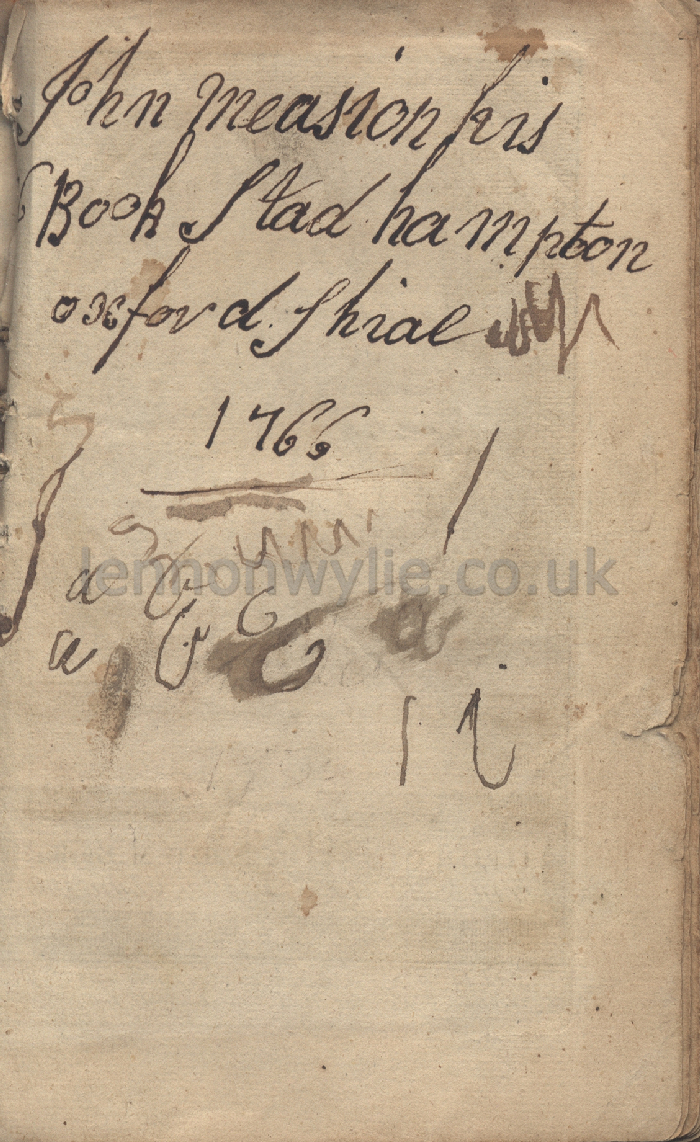 John measion his
Book Stad hampton
oxford Shiae
1766
lennonwylie.co.uk
a b c
a b c a